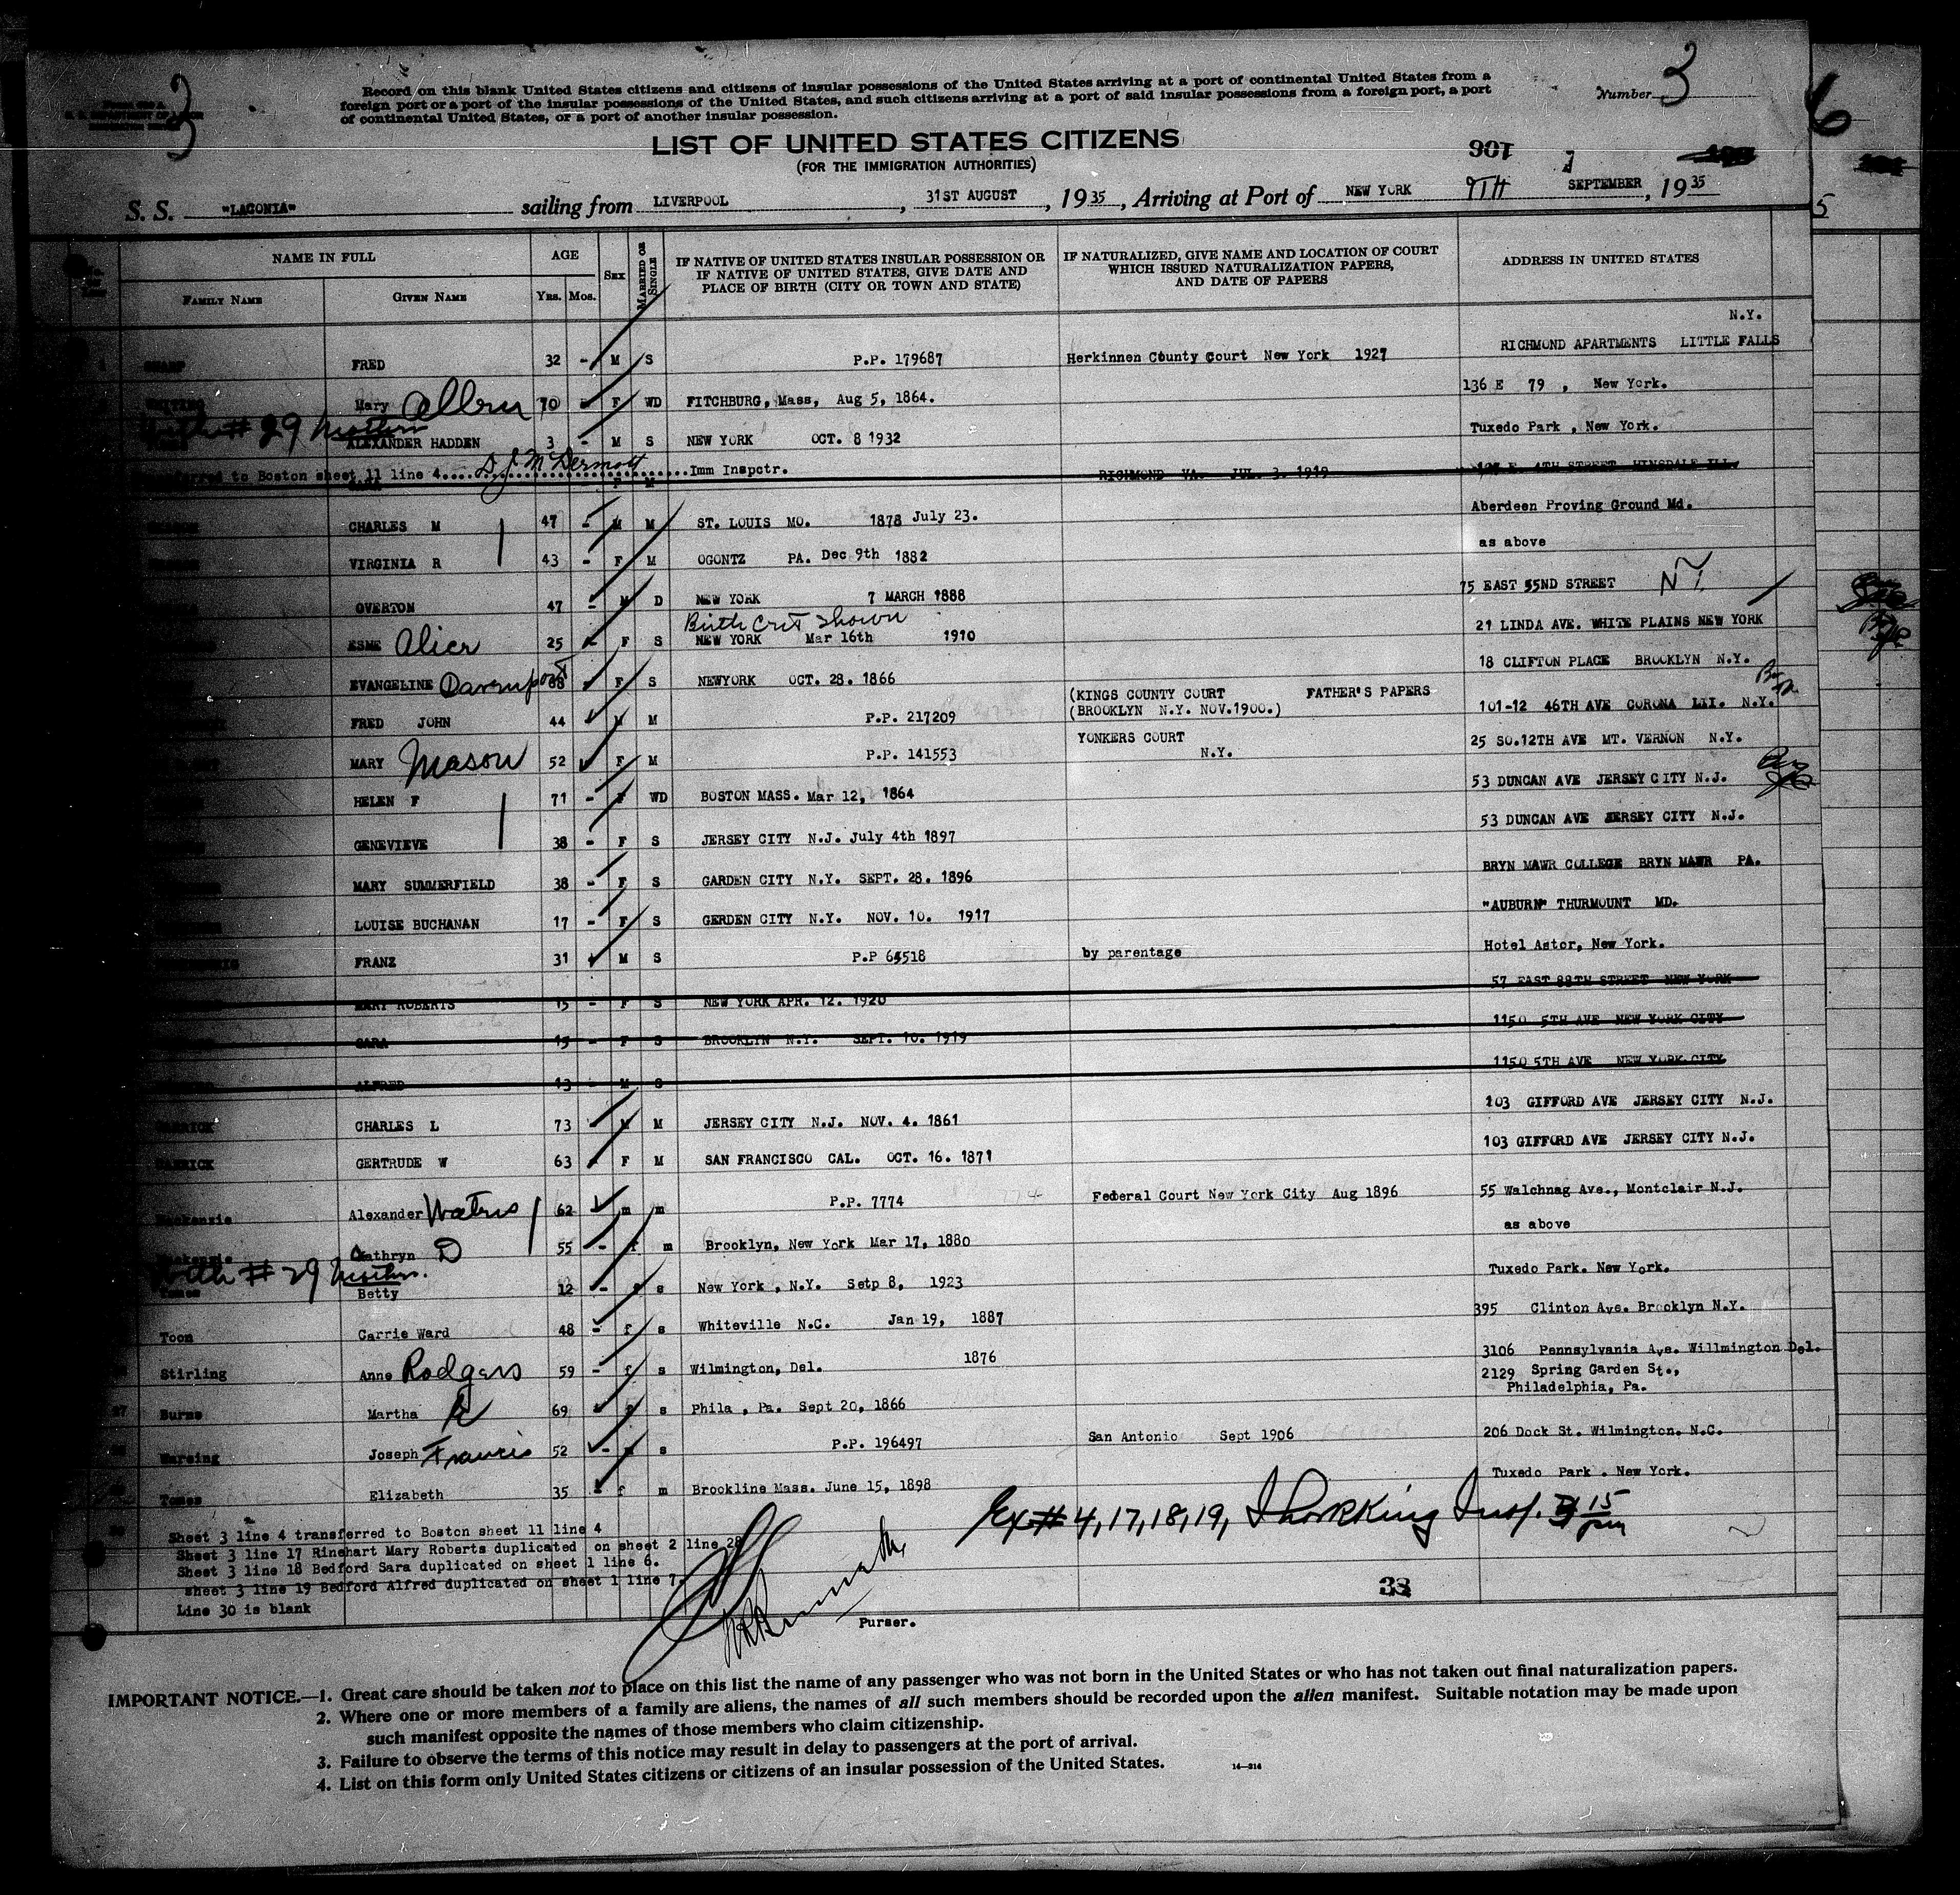 3
Record on this blank United States citizens and citizens of insular possessions of the United States arriving at a port of continental United States from a
foreign port or a port of the insular possessions of the United States, and such citizens arriving at a port of said insular possessions from a foreign port, a port
of continental United States, or a port of another insular possession.
Number 3
6
LIST OF UNITED STATES CITIZENS
(FOR THE IMMIGRATION AUTHORITIES)
106
S. S. "LACONIA" sailing from LIVERPOOL, 31ST AUGUST, 1935, Arriving at Port of NEW YORK 9TH 7 SEPTEMBER, 1935
5
NAME IN FULL AGE SEX MARRIED OR SINGLE IF NATIVE OF UNITED STATES INSULAR POSSESSION OR IF NATIVE OF UNITED STATES, GIVE DATE AND PLACE OF BIRTH (CITY OR TOWN AND STATE) IF NATURALIZED, GIVE NAME AND LOCATION OF COURT WHICH ISSUED NATURALIZATION PAPERS, AND DATE OF PAPERS ADDRESS IN UNITED STATES
FAMILY NAME GIVEN NAME YRS. MOS.
N.Y.
1 SHARP FRED 32 - M S P.P. 179687 Herkinnen County Court New York 1927 RICHMOND APARTMENTS LITTLE FALLS
Mary Allen 70 - F WD FITCHBURG, Mass, Aug 5, 1864. 136 E 79 , New York.
with # 29 Mother
ALEXANDER HADDEN 3 - M S NEW YORK OCT. 8 1932 Tuxedo Park , New York.
to Boston sheet 11 line 4.... D J McDermott ......Imm Inspctr. RICHMOND VA. JUL. 3. 1919 4TH STREET HINSDALE ILL.
CHARLES M 47 - M M ST. LOUIS MO. 1878 July 23. Aberdeen Proving Ground Md.
VIRGINIA R 43 - F M OGONTZ PA. Dec 9th 1882 as above
OVERTON 47 - M D NEW YORK 7 MARCH 1888 75 EAST 55ND STREET NY
Birth Crt Shown
ESME Alice 25 F S NEW YORK Mar 16th 1910 21 LINDA AVE. WHITE PLAINS NEW YORK
EVANGELINE Davenport 68 F S NEWYORK OCT. 28. 1866 18 CLIFTON PLACE BROOKLYN N.Y.
FRED JOHN 44 M M P.P. 217209 (KINGS COUNTY COURT FATHER'S PAPERS (BROOKLYN N.Y. NOV.1900.) 101-12 46TH AVE CORONA LII. N.Y.
MARY Mason 52 F M P.P. 141553 YONKERS COURT N.Y. 25 SO.12TH AVE MT. VERNON N.Y.
HELEN F 71 - F WD BOSTON MASS. Mar 12, 1864 53 DUNCAN AVE JERSEY CITY N.J.
GENEVIEVE 38 - F S JERSEY CITY N.J. July 4th 1897 53 DUNCAN AVE JERSEY CITY N.J.
MARY SUMMERFIELD 38 - F S GARDEN CITY N.Y. SEPT. 28. 1896 BRYN MAWR COLLEGE BRYN MAWR PA.
LOUISE BUCHANAN 17 - F S GERDEN CITY N.Y. NOV. 10. 1917 "AUBURN" THURMOUNT MD.
FRANZ 31 M S P.P 64518 by parentage Hotel Astor, New York.
MARY ROBERTS 15 - F S NEW YORK APR. 12. 1920 57 EAST 88TH STREET NEW YORK
SARA 15 - F S BROOKLYN N.Y. SEPT. 10. 1919 1150 5TH AVE NEW YORK CITY
ALFRED 13 - M S 1150 5TH AVE NEW YORK CITY
CHARLES L 73 - M M JERSEY CITY N.J. NOV. 4. 1861 103 GIFFORD AVE JERSEY CITY N.J.
GERTRUDE W 63 F M SAN FRANCISCO CAL. OCT. 16. 1871 103 GIFFORD AVE JERSEY CITY N.J.
Mackenzie Alexander Waters 62 m m P.P. 7774 Federal Court New York City Aug 1896 55 Walchnag Ave., Montclair N.J.
Mackenzie Cathryn D 55 - f m Brooklyn, New York Mar 17, 1880 as above
with # 29 Mother.
Tomes Betty 12 - f s New York , N.Y. Setp 8, 1923 Tuxedo Park. New York.
Toon Carrie Ward 48 - f s Whiteville N.C. Jan 19, 1887 395 Clinton Ave. Brooklyn N.Y.
Stirling Anne Rodgers 59 - f s Wilmington, Del. 1876 3106 Pennsylvania Ave. Willmington Del.
27 Burns Martha R 69 f s Phila , Pa. Sept 20, 1866 2129 Spring Garden St., Philadelphia, Pa.
Joseph Francis 52 - m s P.P. 196497 San Antonio Sept 1906 206 Dock St. Wilmington. N.C.
Tomes Elizabeth 35 - f m Brookline Mass. June 15, 1898 Tuxedo Park . New York.
Ex # 4, 17, 18, 19, Insp. 3 15 pm
Sheet 3 line 4 transferred to Boston sheet 11 line 4
Sheet 3 line 17 Rinehart Mary Roberts duplicated on sheet 2 line 28
Sheet 3 line 18 Bedford Sara duplicated on sheet 1 line 6.
sheet 3 line 19 Bedford Alfred duplicated on sheet 1 line 7.
Line 30 is blank
38
Purser.
IMPORTANT NOTICE.—1. Great care should be taken not to place on this list the name of any passenger who was not born in the United States or who has not taken out final naturalization papers.
2. Where one or more members of a family are aliens, the names of all such members should be recorded upon the alien manifest. Suitable notation may be made upon
such manifest opposite the names of those members who claim citizenship.
3. Failure to observe the terms of this notice may result in delay to passengers at the port of arrival.
4. List on this form only United States citizens or citizens of an insular possession of the United States.
14—214